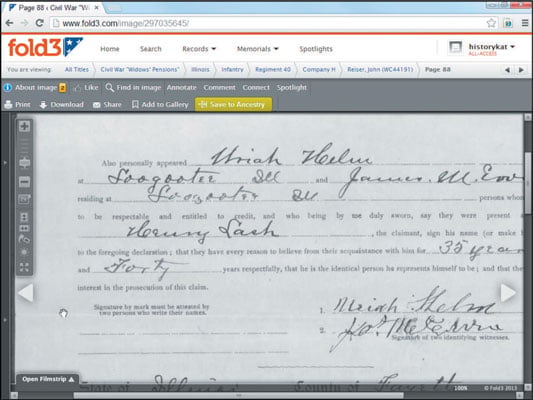 Page 88 - Civil War "Wi
www.fold3.com/image/297035645/
fold3 Home Search Records Memorials Spotlights historykat
ALL-ACCESS
You are viewing: All Titles Civil War "Widows' Pensions" Illinois Infantry Regiment 40 Company H Reiser, John (WC44191) Page 88
About image 2 Like Find in image Annotate Comment Connect Spotlight
Print Download Share Add to Gallery Save to Ancestry
Also personally appeared Uriah Helm
at Loogootee Ill and James M.
residing at Loogootee Ill persons whom
to be respectable and entitled to credit, and who being by me duly sworn, say they were present a
Henry Lash , the claimant, sign his name (or make h
to the foregoing declaration; that they have every reason to believe from their acquaintance with him for 35 year
and Forty years respectfully, that he is the identical person he represents himself to be; and that the
interest in the prosecution of this claim.
Signature by mark must be attested by
two persons who write their names.
1. Uriah Helm
2.
Signature of two identifying witnesses.
Open Filmstrip
State of Illinois County of Fayette
100% © Fold3 2013